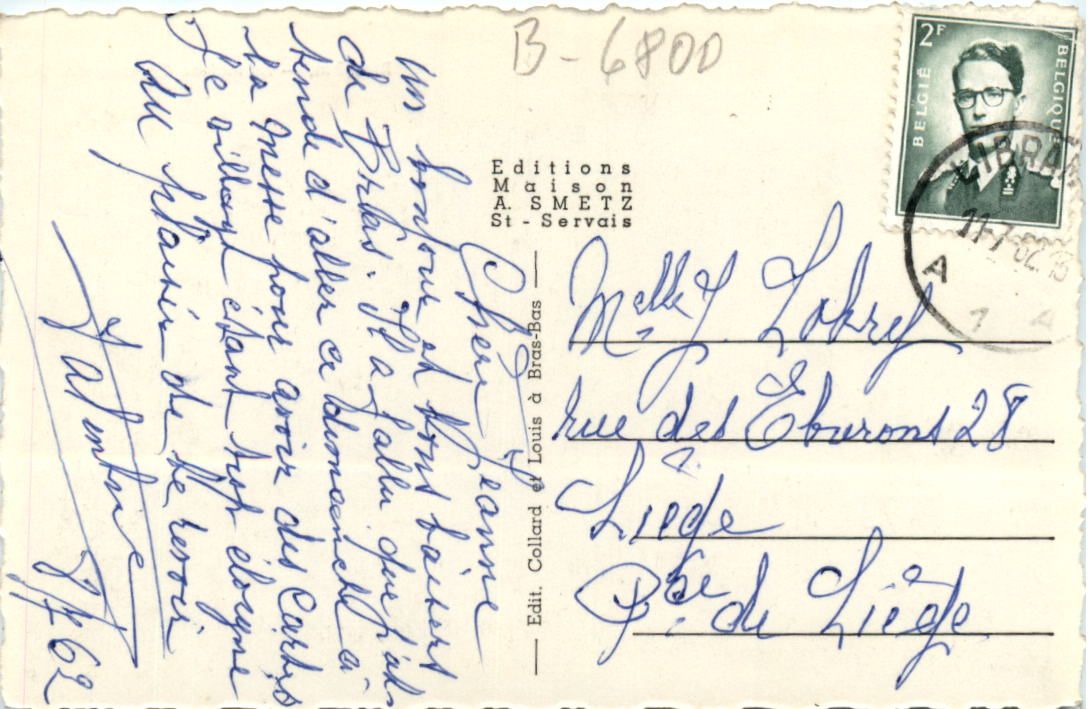 B - 6800
2F
BELGIË
BELGIQUE
LIBRAM
11-7-62 16
A
1 A
Editions
Maison
A. SMETZ
St - Servais
Edit. Collard et Louis à Bras-Bas
Chère Jeanne
Un bonjour et bons baisers
de Bras. Il a fallu que j'at-
tende d'aller ce dimanche à
la messe pour avoir des Cartes
Le village étant trop éloigné
Au plaisir de te revoir
Valentine
8/7/62
Melle J. Lobref
rue des Eburons 28
Liège
Pce de Liège